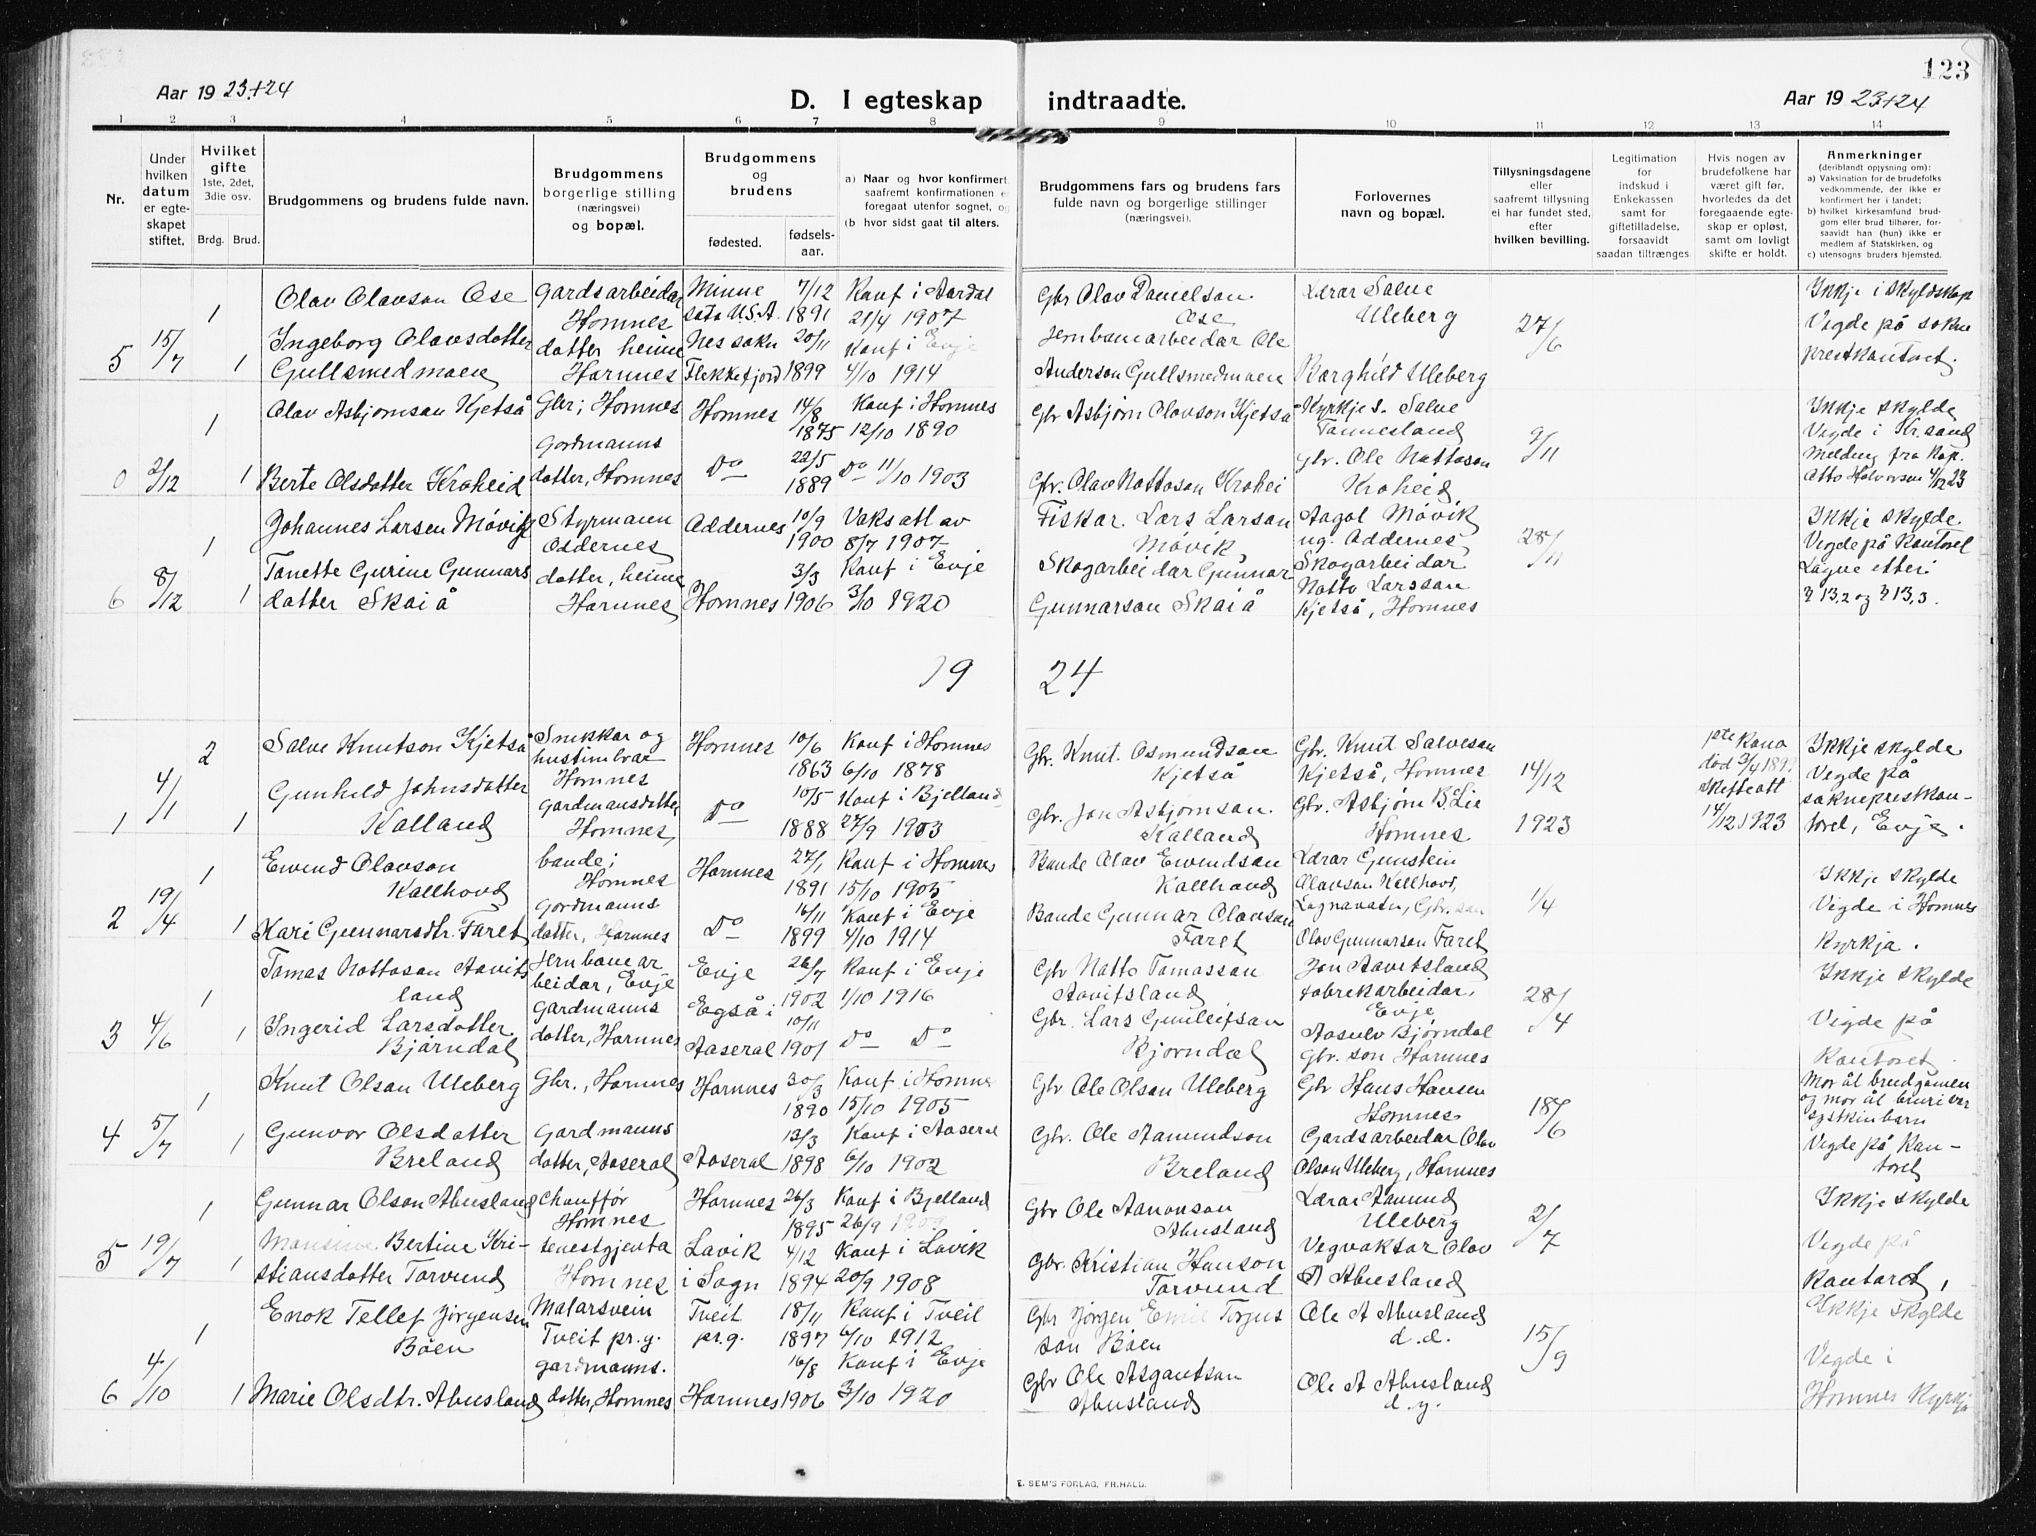 123
Aar 19 23+24
D. I egteskap indtraadte.
Aar 19 23+24
1 2 3 4 5 6 7 8 9 10 11 12 13 14
Nr.
Under hvilken datum er egteskapet stiftet.
Hvilket gifte 1ste, 2det, 3die osv.
Brdg. Brud.
Brudgommens og brudens fulde navn.
Brudgommens borgerlige stilling (næringsvei) og bopæl.
Brudgommens og brudens
fødested.
fødselsaar.
a) Naar og hvor konfirmert
saafremt konfirmationen
foregaat utenfor sognet,
(b hvor sidst gaat til alters.
Brudgommens fars og brudens fars
fulde navn og borgerlige stillinger
(næringsvei).
Forlovernes
navn og bopæl.
Tillysningsdagene
eller
saafremt tillysning
ei har fundet sted,
efter
hvilken bevilling.
Legitimation
for
indskud i
Enkekassen
samt for
giftetilladelse,
forsaavidt
saadan tiltrænges
Hvis nogen av
brudefolkene har
været gift før,
hvorledes da det
foregaaende egteskap er opløst,
samt om lovlig
skifte er holdt.
Anmerkninger
(deriblandt opjysning om):
a) Vaksination for de brudefolks
vedkommende, der ikke er
konfirmert her i landet;
b) hvilket kirkesamfund brudgom eller brud tilhører, forsaavidt han (hun) ikke er
medlem af Statskirken, og
c) utensogns bruders hjemsted.
5 15/7 1 1
Olav Olavson Ose
Ingeborg Olavsdotter
Gullsmedmoen
Gardsarbeidar
Hornnes
dotter heime
Hornnes
Minnesota U.S.A.
Nes sokn
Flekkefjord
7/12 1891
20/11 1899
Konf i Aardal
21/4 1907
Konf i Evje
4/10 1914
Gbr Olav Danielson
Ose
Jernbanarbeidar Ole
Anderson Gullsmedmoen
Lærar Salve
Uleberg
Borghild Uleberg
27/6
Ikkje i skyldskap
Vigde på sokneprestkontoret.
0 2/12 1 1
Olav Asbjørnson Kjetså
Berte Olsdotter Kroheid
Gbr; Hornnes
Gardmannsdotter, Hornnes
Hornnes
Do
14/8 1875
22/5 1889
Konf i Hornnes
12/10 1890
Do 11/10 1903
Gbr Asbjørn Olavson Kjetså
Gbr. Olav Nottoson Krohei
Kyrkjes. Salve
Tannesland
Gbr. Ole Nottoson
Kroheid
9/11
Ikkje skylde
Vigde i Kr.sand
Melding fra kap.
Otto Halvorsen 4/12 23
6 8/12 1 1
Johannes Larsen Møvik
Tanette Gurine Gunnarsdotter Skaiå
Styrmann
Oddernes
dotter, heime
Hornnes
Oddernes
Hornnes
10/9 1900
3/3 1906
Vaks att av
8/7 1907
Konf i Evje
3/10 1920
Fiskar. Lars Larson
Møvik
Skogarbeidar Gunnar
Gunnarson Skaiå
Aagot Møvik
ug. Oddernes
Skogarbeidar
Notto Larsson
Kjetså, Hornnes
28/11
Ikkje skylde.
Vigde på Kontoret
Lagne etter:
§ 13,2 og § 13,3.
19 24
1 4/1 2 1
Salve Knutson Kjetså
Gunhild Johnsdotter
Kalland
Snikkar og
hustimbrar
Hornnes
Gardmansdotter
Hornnes
Hornnes
Do
10/6 1863
10/5 1888
Konf i Hornnes
6/10 1878
Konf i Bjelland
27/9 1903
Gbr. Knut Osmundson
Kjetså
Gbr. Jon Asbjørnson
Kalland
Gbr. Knut Salveson
Kjetså, Hornnes
Gbr. Asbjørn B. Lie
Hornnes
14/12 1923
Kona
død 3/4 189
Skifteatt
14/12 1923
Ikkje skylde
Vigde på
sokneprestkontoret, Evje.
2 19/4 1 1
Eivind Olavson
Kallhovd
Kari Gunnarsdtr. Faret
bonde;
Hornnes
Gardmannsdotter, Hornnes
Hornnes
Do
27/1 1891
16/11 1899
Konf i Hornnes
15/10 1905
Konf i Evje
4/10 1914
Bonde Olav Eivindson
Kallhovd
Bonde Gunnar Olavson
Faret
Lærar Gunstein
Olavson Kallhovd,
Lognavatn, Gbr. son
Olav Gunnarson Faret
1/4
Ikkje skylde
Vigde i Hornnes
Kyrkja.
3 4/6 1 1
Tomas Nottoson Aavitsland
Ingerid Larsdotter
Bjørndal
Jernbanearbeidar, Evje
Gardmannsdotter, Hornnes
Evje
Egså i
Aaseral
26/7 1902
10/11 1901
Konf i Evje
1/10 1916
Do Do
Gbr Notto Tomasson
Aavitsland
Gbr. Lars Gunleifson
Bjørndal
Jon Aavitsland
fabrikarbeidar,
Evje
Aasulv Bjørndal
Gbr. son Hornnes
28/4
Ikkje skylde
Vigde på
Kontoret
4 5/7 1 1
Knut Olson Uleberg
Gunvor Olsdotter
Breland
Gbr., Hornnes
Gardmannsdotter, Aaseral
Hornnes
Aaseral
30/3 1890
13/3 1898
Konf i Hornnes
15/10 1905
Konf i Aaseral
6/10 1902
Gbr Ole Olson Uleberg
Gbr. Ole Aamundson
Breland
Gbr Hans Hansen
Hornnes
Gardsarbeidar Olav
Olson Uleberg, Hornnes
18/6
Mor åt brudgomen
og mor åt bruri var
syskinbarn
Vigde på Kontoret
5 19/7 1 1
Gunnar Olson Abusland
Monsine Bertine Kristiansdotter Torvund
Chauffør
Hornnes
tenestgjenta
Hornnes
Hornnes
Lavik
i Sogn
26/3 1895
4/12 1894
Konf i Bjelland
26/9 1909
Konf i Lavik
20/9 1908
Gbr Ole Aanonson
Abusland
Gbr. Kristian Hanson
Torvund
Lærar Aamund
Uleberg
Vegvaktar Olav
A Abusland
2/7
Ikkje skylde
Vigde på
Kontoret,
6 4/10 1 1
Enok Tellef Jørgensen
Bøen
Marie Olsdtr. Abusland
Malarsvein
Tveit pr.g.
gardmanns.
dotter, Hornnes
Tveit
pr.g.
Hornnes
18/11 1897
16/8 1906
Konf i Tveit
6/10 1912
Konf i Evje
3/10 1920
Gbr Jørgen Emil Torjusson Bøen
Gbr Ole Asgautson
Abusland
Ole A Abusland
d.e.
Ole A Abusland
d.y.
15/9
Ikkje skylde
Vigde i
Hornnes Kyrkja
E. SEM'S FORLAG, FR.HALD.